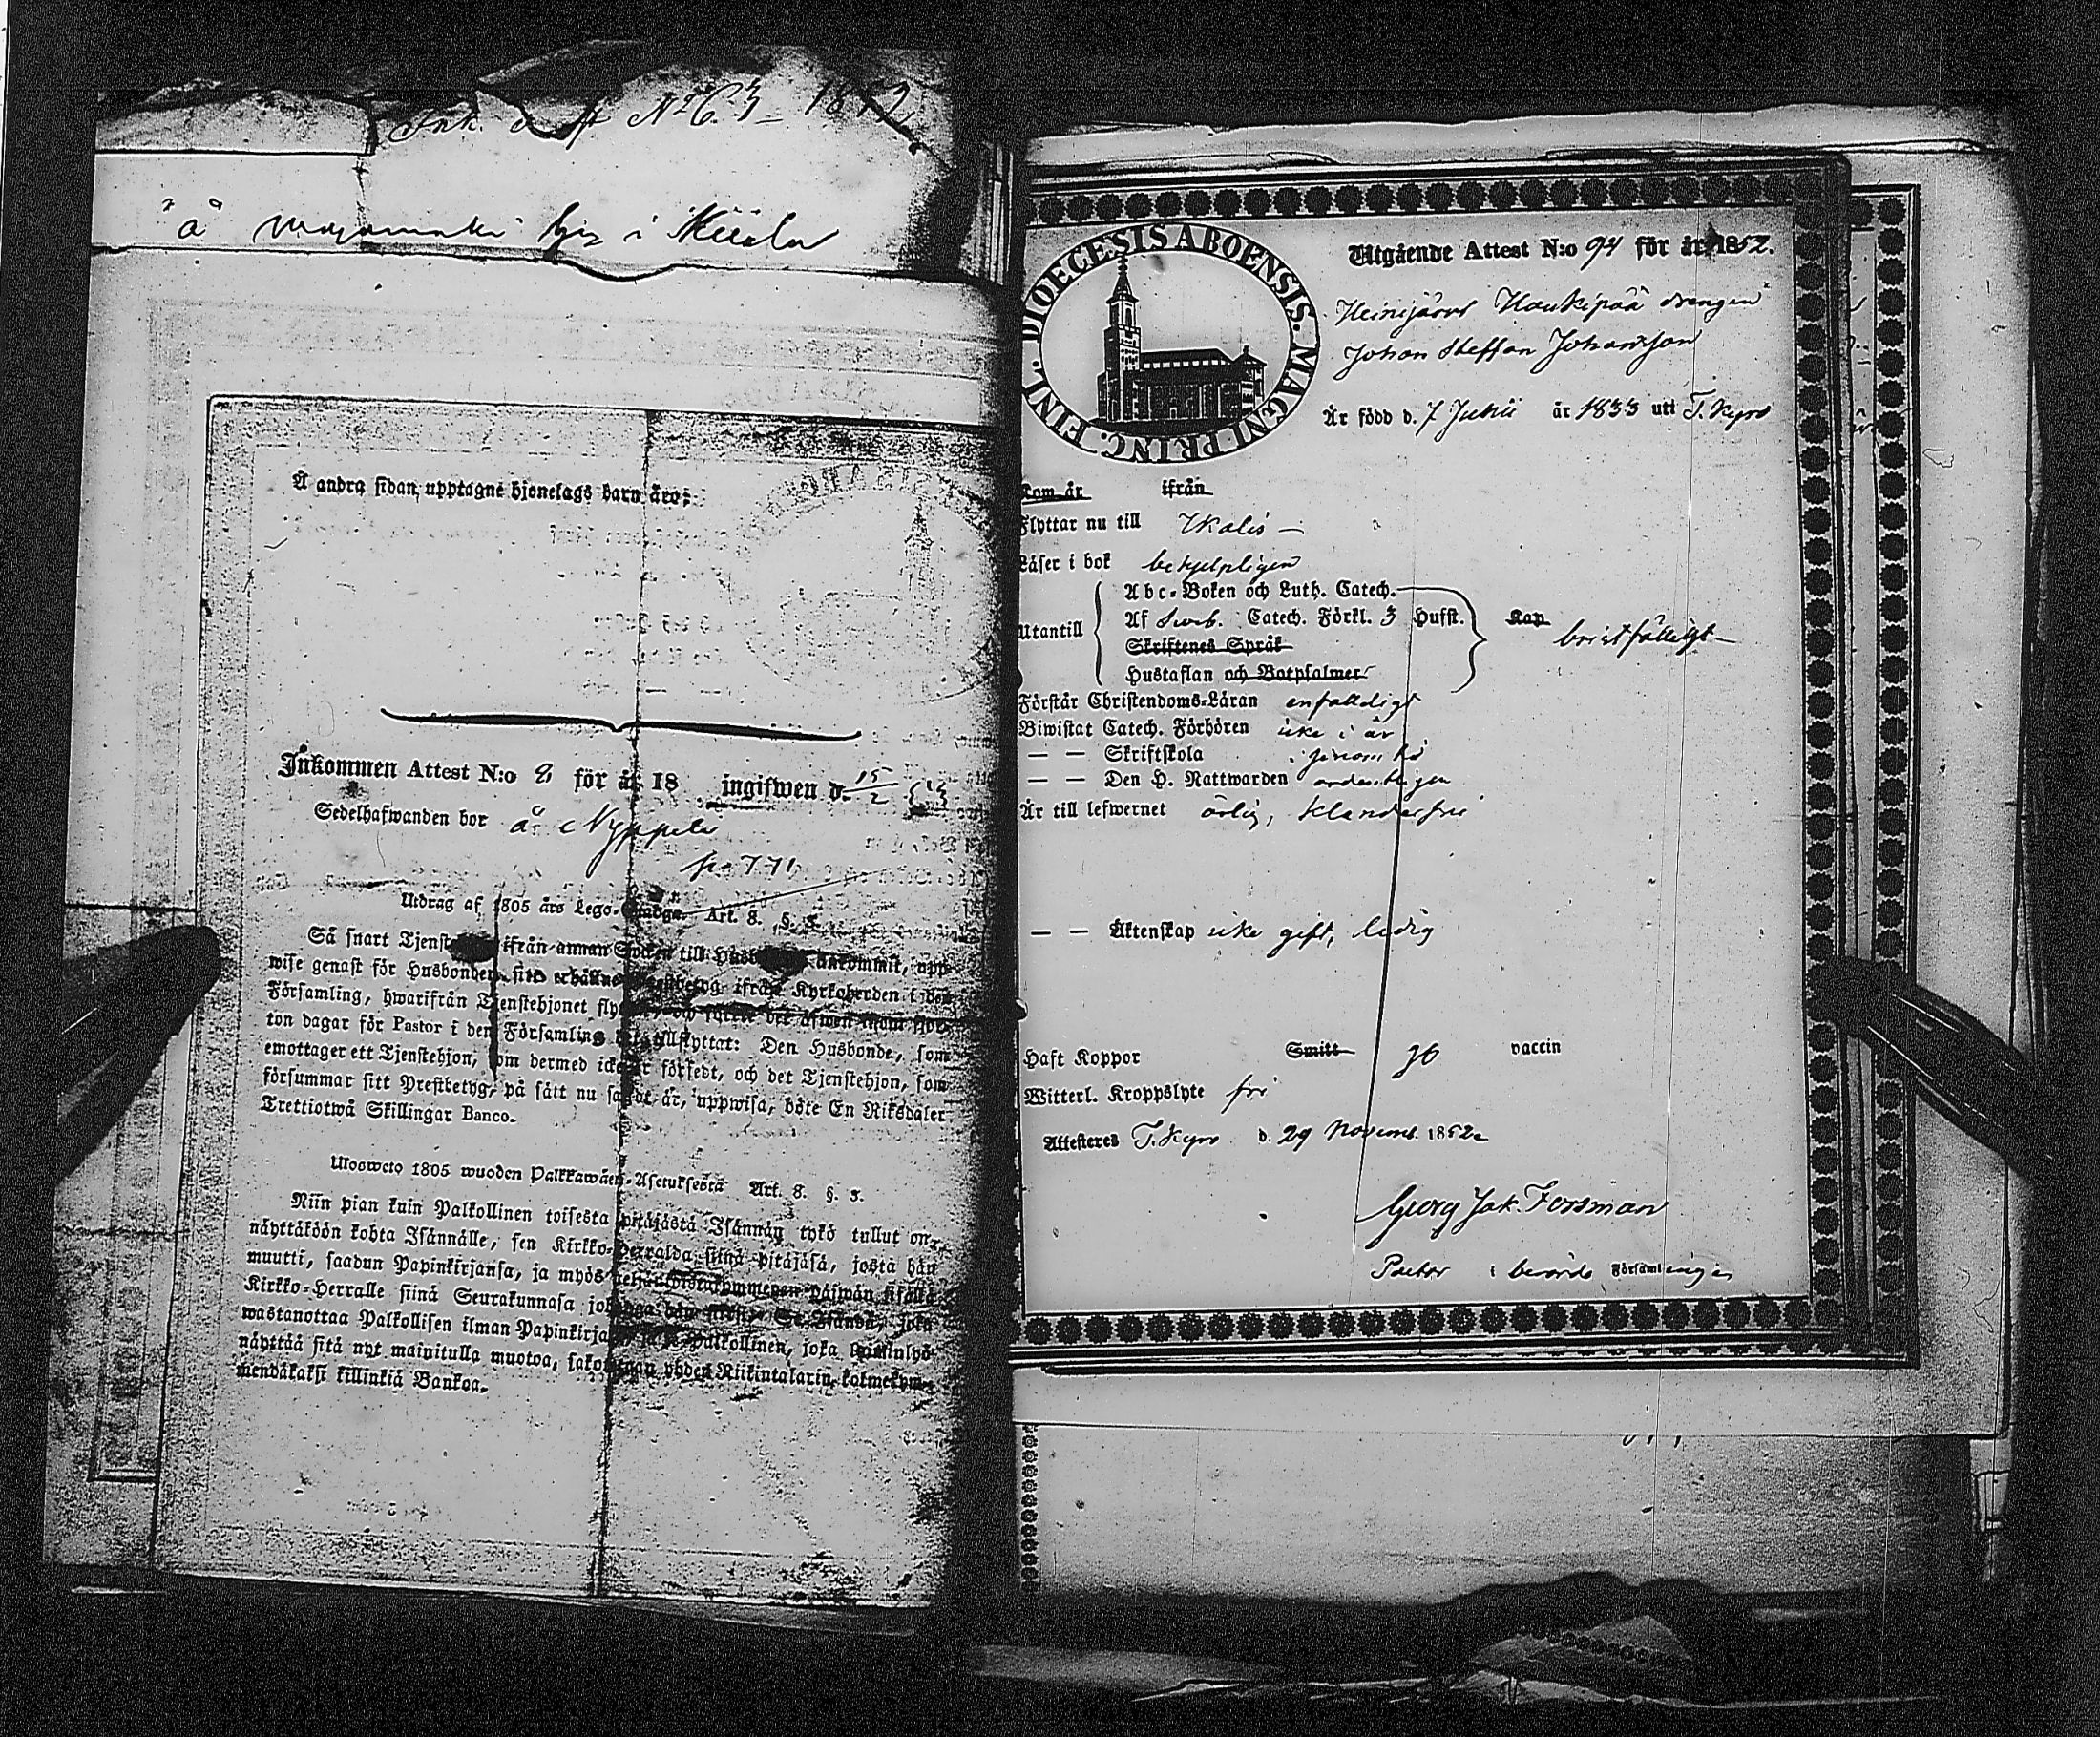 Ink. N:o 63
"å" i
Å andra sidan upptagne hjonelags barn äro:
Inkommen Attest N:o 8 för år 18 ingifwen d. 15/2 53
Sedelhafwanden bor å Nyppeli
p. 771
Utdrag af 1805 års Lego-Stadga. Art. 8. §. 3.
Så snart Tjenst ifrån annan Socken till Husb ankommit, upp-
wise genast för Husbonden sitt erhållne ifrån Kyrkoherden i den
Församling, hwarifrån Tjenstehjonet fly och det äfwen inom fjor-
ton dagar för Pastor i den Församling tillflyttat: Den Husbonde, som
emottager ett Tjenstehjon, som dermed icke är försedt, och det Tjenstehjon, som
försummar sitt Prestbetyg, på sätt nu sagdt är, uppwisa, böte En Riksdaler
Trettiotwå Skillingar Banco.
Ulosweto 1805 wuoden Palkkawäen-Asetuksesta Art. 8. §. 3.
Niin pian kuin Palkollinen toisesta pitäjästä Isännän tykö tullut on,
näyttäköön kohta Isännälle, sen Kirkko-Herralda siinä pitäjäsä, josta hän
muutti, saadun Papinkirjansa, ja myös neljäntoistakymmenen päiwän sisällä
Kirkko-Herralle siinä Seurakunnasa johonga hän Se Isändä, joka
wastanottaa Palkollisen ilman Papinkirja Palkollinen, joka laiminlyö
näyttää sitä nyt mainitulla muotoa, sakoitetaan yhden Riikintalarin kolmekym-
mendäkaksi killinkiä Bankoa.
DIOECESIS ABOENSIS. MAGNI PRINC. FINL.
Utgående Attest N:o 94 för år 1852.
Heinijärvi Haukipää drängen
Johan Steffan Johansson
Är född d. 7 Junii år 1833 uti T. Kyro
Kom år ifrån
Flyttar nu till Ikalis —
Läser i bok behjelpligen
Utantill
Abc-Boken och Luth. Catech.
Af Sveb. Catech. Förkl. 3 Hufst. Kap
Skriftenes Språk
bristfälligt
Hustaflan och Botpsalmer
Förstår Christendoms-Läran enfaldigt
Biwistat Catech. Förhören icke i år
— — Skriftskola
— — Den H. Nattwarden ordentligen
Är till lefwernet ärlig, klanderfri
— — Äktenskap icke gift, ledig
Haft Koppor Smitt vaccin
Witterl. Kroppslyte fri
Attesteres T. Kyro d. 29 Novemb. 1852
Georg Jak. Forsman
Pastor i berörde Församlingen